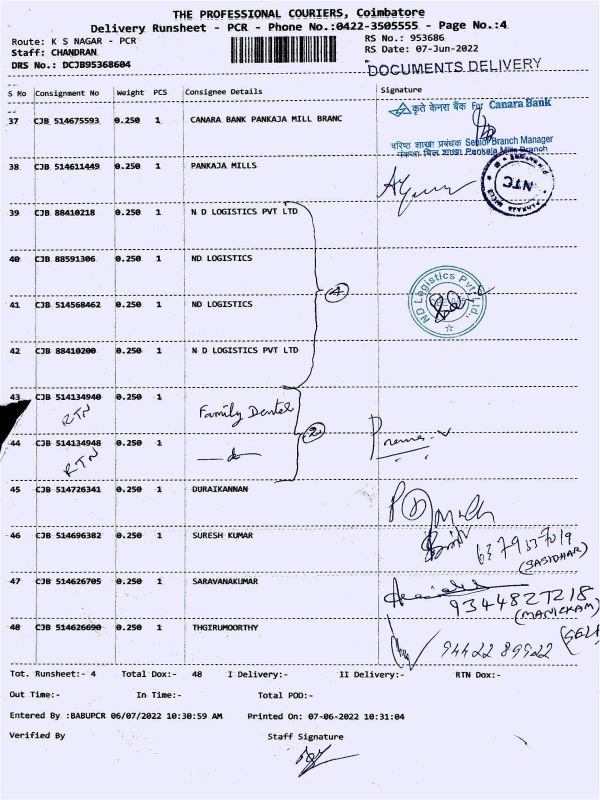 THE PROFESSIONAL COURIERS, Coimbatore
Delivery Runsheet - PCR - Phone No.:0422-3505555 - Page No.:4
Route: K S NAGAR - PCR
Staff: CHANDRAN
DRS No.: DCJB95368604
RS No.: 953686
RS Date: 07-Jun-2022
DOCUMENTS DELIVERY
S No Consignment No Weight PCS Consignee Details Signature
37 CJB 514675593 0.250 1 CANARA BANK PANKAJA MILL BRANC
कृते केनरा बैंक For Canara Bank
वरिष्ठ शाखा प्रबंधक Senior Branch Manager
पंकजा मिल शाखा Pankaja Mills Branch
38 CJB 514611449 0.250 1 PANKAJA MILLS
NTC
PANKAJA MILLS
39 CJB 88410218 0.250 1 N D LOGISTICS PVT LTD
40 CJB 88591306 0.250 1 ND LOGISTICS
4
ND Logistics Pvt. Ltd.,
41 CJB 514568462 0.250 1 ND LOGISTICS
42 CJB 88410200 0.250 1 N D LOGISTICS PVT LTD
43 CJB 514134940 0.250 1 Family Dental
RTN
2
44 CJB 514134948 0.250 1
RTN
Prema
45 CJB 514726341 0.250 1 DURAIKANNAN
46 CJB 514696382 0.250 1 SURESH KUMAR
6379537019
(SASIDHAR)
47 CJB 514626705 0.250 1 SARAVANAKUMAR
9344827218
(MANICKAM)
48 CJB 514626690 0.250 1 THGIRUMOORTHY
94422 89922
Tot. Runsheet:- 4 Total Dox:- 48 I Delivery:- II Delivery:- RTN Dox:-
Out Time:- In Time:- Total POD:-
Entered By :BABUPCR 06/07/2022 10:30:59 AM Printed On: 07-06-2022 10:31:04
Verified By Staff Signature